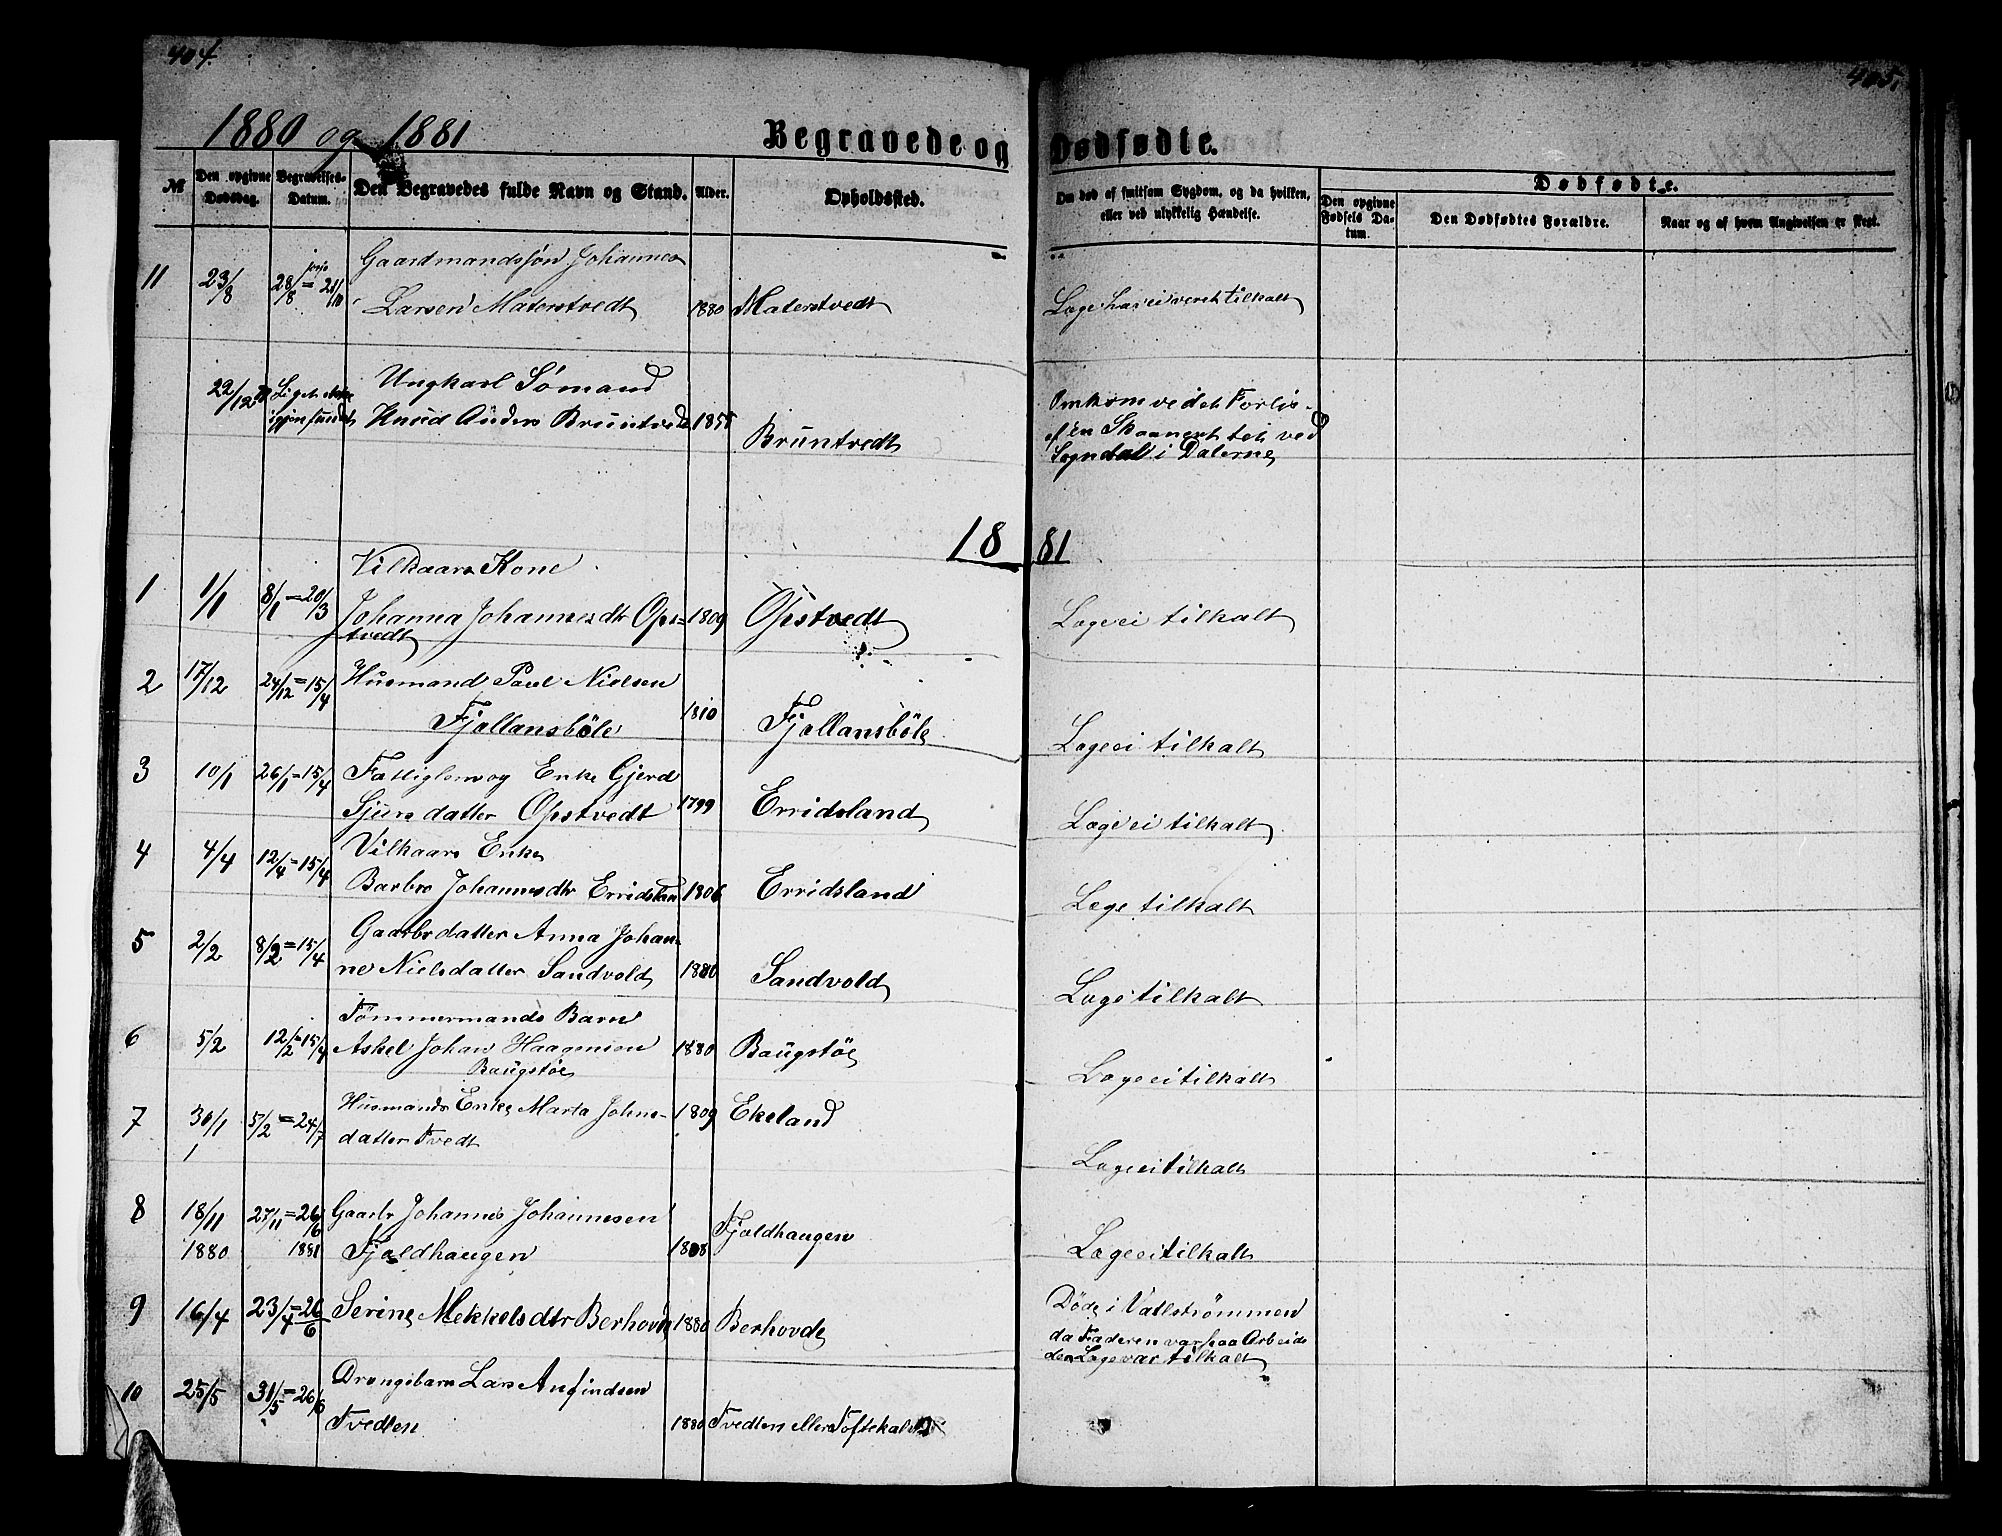 404.
405.
1880 og 1881
Begravede og Dødfødte.
№
Den opgivne Dødsdag.
Begravelses-Datum.
Den Begravedes fulde Navn og Stand.
Alder.
Opholdssted.
Om død af smitsom Sygdom, og da hvilken, eller ved ulykkelig Hændelse.
Dødfødte.
Den opgivne Fødsels Datum.
Den Dødfødtes Forældre.
Naar og af hvem Angivelsen er skeet.
11 23/8 28/8 = 21/10 Gaardmandssøn Johannes
Larsen Materstvedt 1880 Materstvedt Læge har ei veret tilkalt
22/12 Liget ikke Ungkarl Sømand
igjenfundet Knud Anders Bruntvedt 1855 Bruntvedt Omkom ved et Forlis
af en Skonnert tæt ved
Sogndal i Dalerne
1881
1 1/1 8/1 = 20/3 Vilkaars Kone
Johanna Johannesdtr Ops= 1809 Opstvedt Læge ei tilkalt
tvedt
2 17/12 24/12 = 15/4 Husmand Paul Nielsen
Fjellansbøle 1810 Fjellansbøle Læge ei tilkalt
3 10/1 26/1 = 15/4 Fattiglem og Enke Gjerd
Sjursdatter Opstvedt 1799 Erridsland Læge ei tilkalt
4 4/4 12/4 = 15/4 Vilkaars Enke
Barbro Johannesdtr Erridsland 1806 Erridsland Læge tilkalt
5 2/2 8/2 = 15/4 Gaardbrdatter Anna Johan-
ne Nielsdatter Sandvold 1880 Sandvold Læge tilkalt
6 5/2 12/2 = 15/4 Tømmermands Barn
Askel Johan Haagensen 1880 Baugstøe Læge ei tilkalt
Baugstøe
7 30/1 5/2 = 24/7 Husmands Enke Marta Johns- 1809 Ekeland
datter Tvedt Læge ei tilkalt
8 18/11 27/11 = 26/6 Gaardbr Johannes Johannesen
1880 1881 Fjeldhaugen 1808 Fjeldhaugen Læge ei tilkalt
9 16/4 23/4 = 26/6 Serine Mekkelsdtr Berhovde 1880 Berhovde Døde i Vatsstrømmen
da Faderen var paa Arbeide
den Læge var tilkalt
10 25/5 31/5 = 26/6 Drengebarn Lars Anfindsen
Tvedten 1880 Tvedten eller Toftekalv